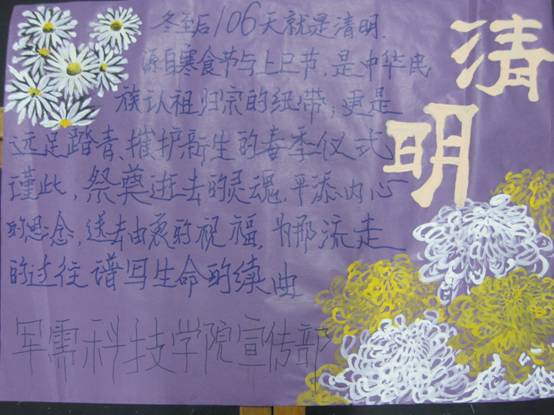 清明
冬至后106天就是清明.
源自寒食节与上巳节,是中华民
族认祖归宗的纽带,更是
远足踏青、拥护新生的春季仪式
谨此,祭奠逝去的灵魂,平添内心
的思念,送去由衷的祝福,为那流走
的过往谱写生命的续曲
军需科技学院宣传部